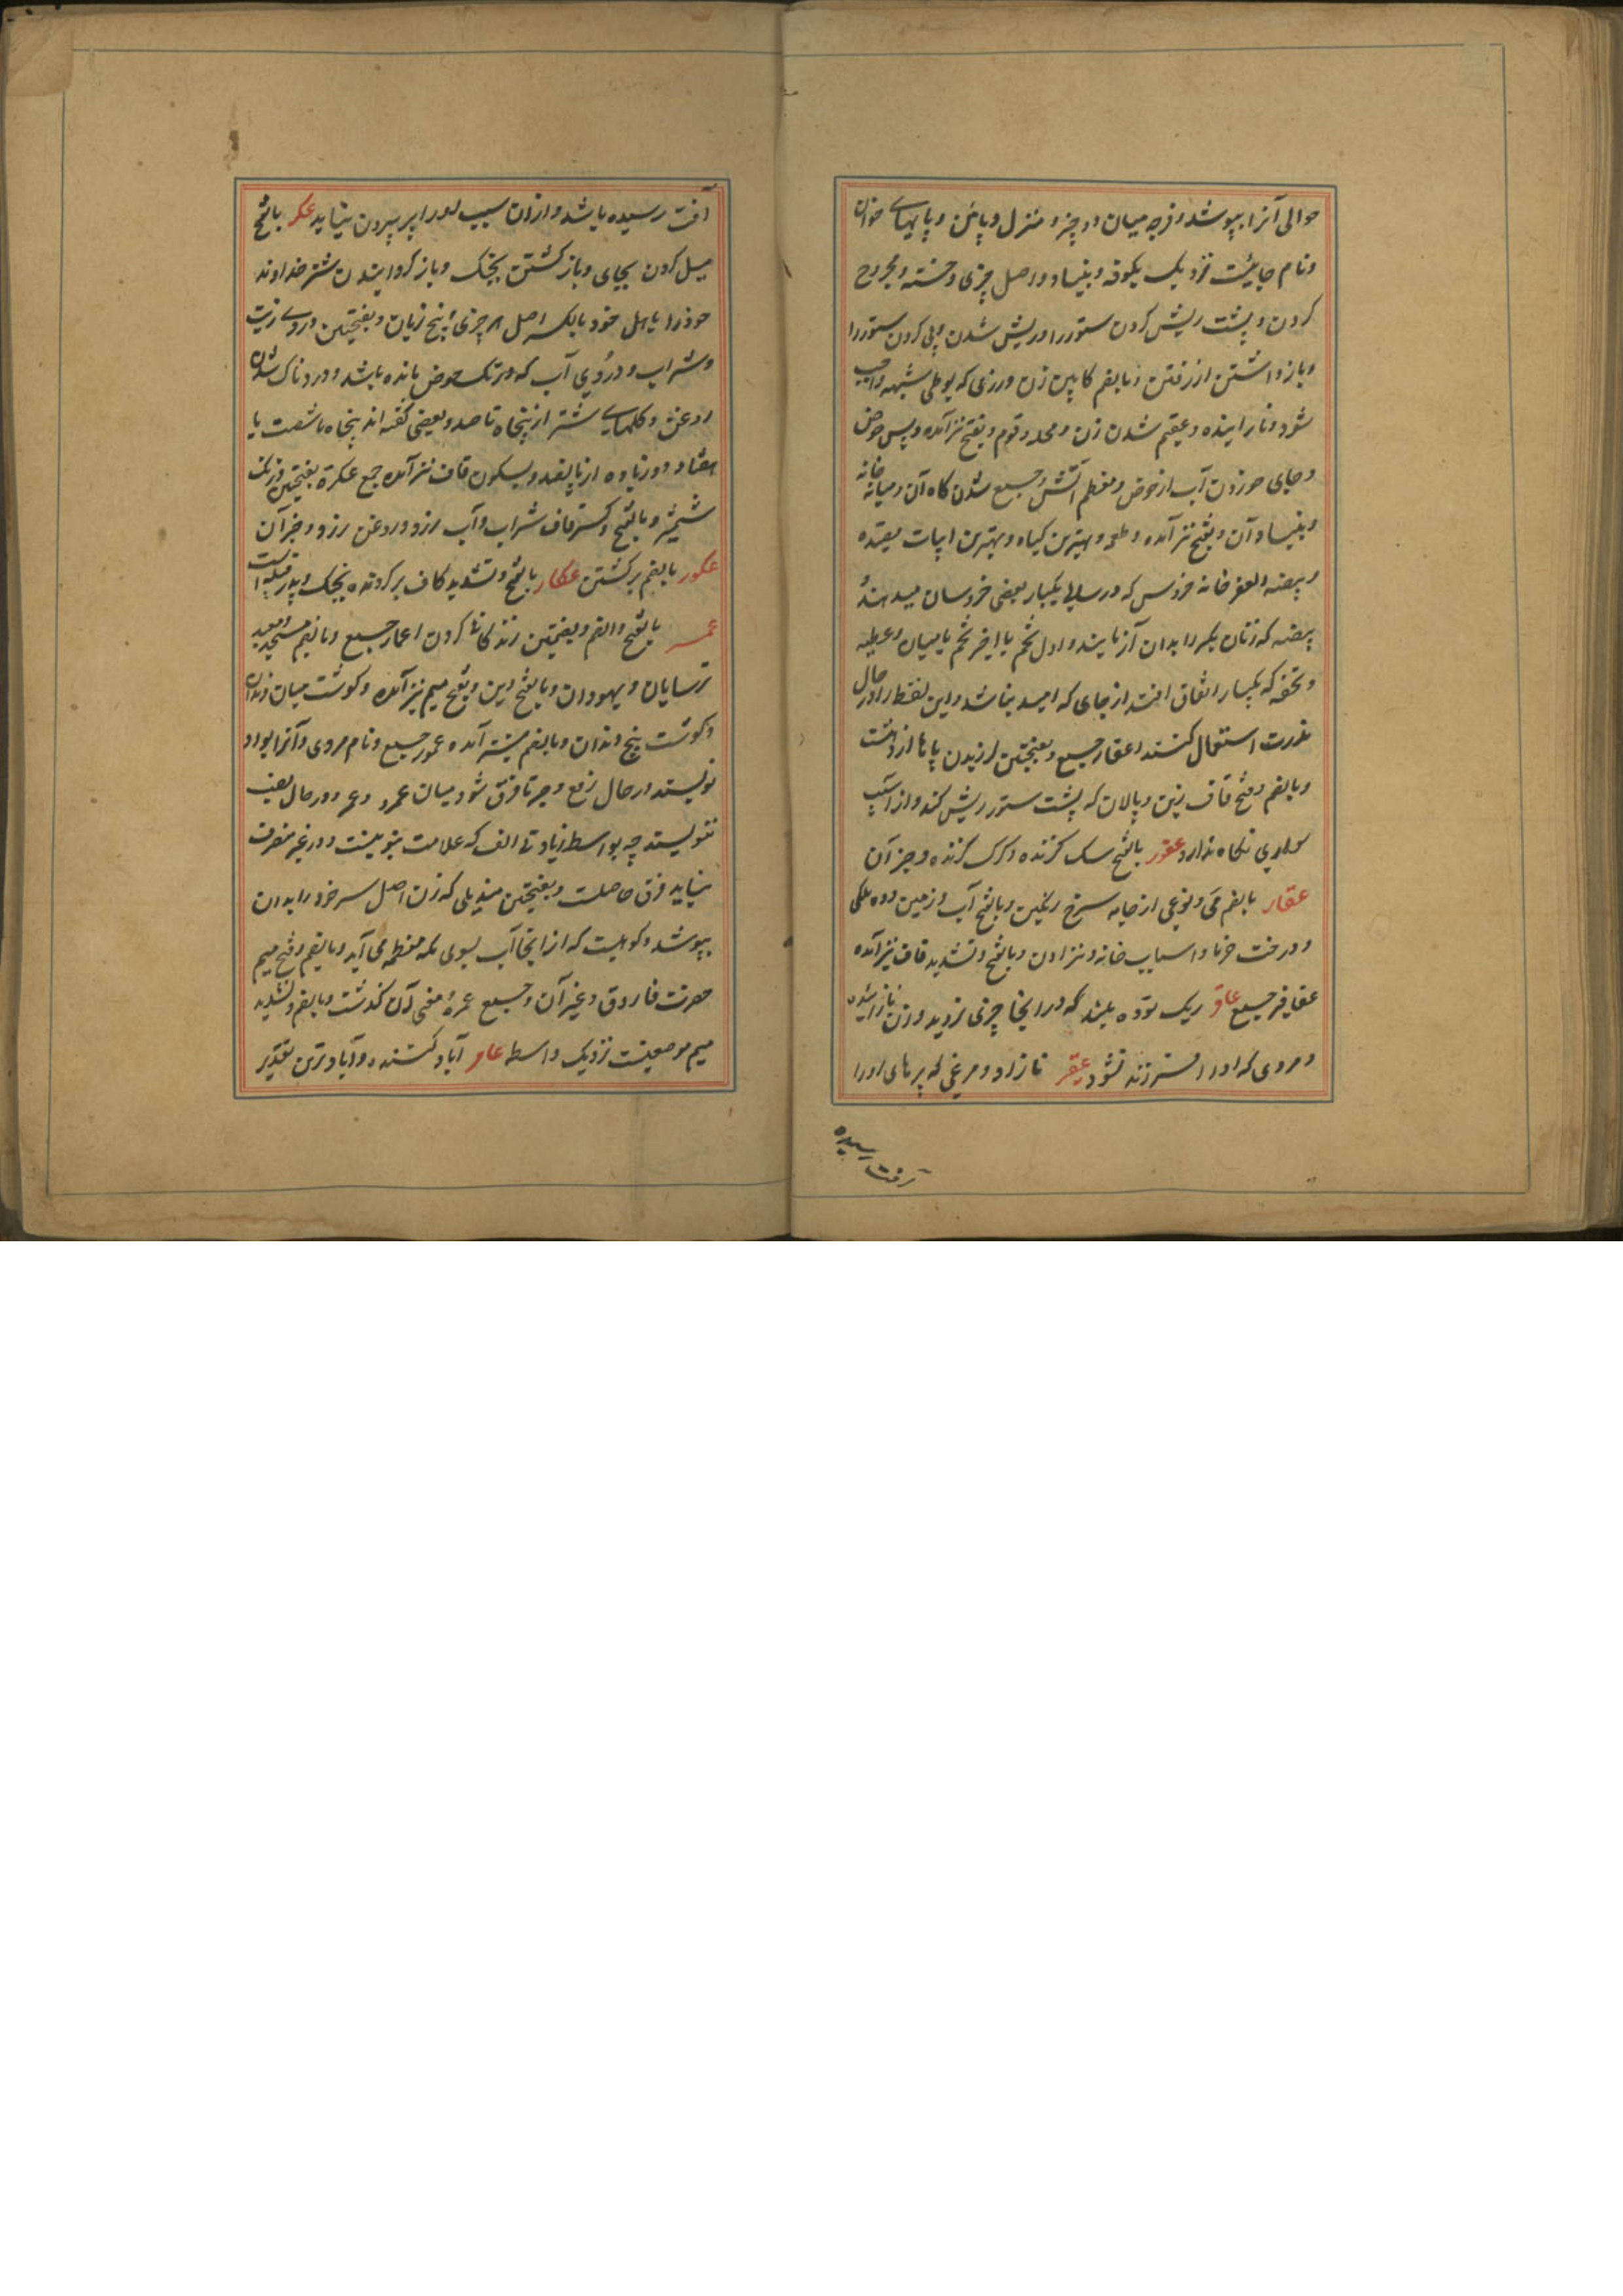 حوالی آنرا بپوشد و فرجه میان دو چیز و منزل و پائین و پایهای خوان
و نام جائیست نزدیک بکوفه و بنیاد و اصل چیزی و خسته و مجروح
کردن و پشت ریش کردن ستور را و ریش شدن و پی کردن ستور را
و باز داشتن از رفتن و بالضم کابین زن و رزی که بوطی شبهه واجب
شود و نازاینده و عقیم شدن زن و محله قوم و بفتح نیز آمده و پس حوض
و جای خوردن آب از حوض و معظم آتش و جمیع شدن کاه آن و میانه خانه
و بنیاد آن و بفتح نیز آمده و طعمه و بهترین کیاه و بهترین ابیات قصیده
و بیضه العقر خانه خروس که در سالی یکبار بعضی خروسان میدهند
بیضه که زنان بکر را بدان آزمایند و اول تخم یا اخر تخم ماکیان و عطیه
و تحفه که یکبار اتفاق افتد از جای که امید نباشد و این لفظ را در حال
ندرت استعمال کنند اعقار جمیع و بفتحتین لرزیدن پاها از دهشت
و بالضم و فتح قاف زین و پالان که پشت ستور ریش کند و از آسیب
نکاه ندارد عقور بالفتح سک کزنده و کرک کزنده و جز آن
عقار بالضم می و نوعی از جامه سرخ رنکین و بالفتح آب و زمین و ده ملکی
و درخت خرما و اسباب خانه و بالفتح و تشدید قاف نیز آمده
عقاقیر جمیع عاقر ریک توده بلند که در اینجا چیزی نروید و زن نازاینده
و مردی که او را فرزند نشود عقر نازاد و مرغی که پرهای او را
آفت رسیده
آفت رسیده باشد و از ان سبب او را پر بیرون نیاید عکر بالفتح
میل کردن بجای و باز کشتن بجنک و باز کردانیدن شتر خداوند
خود را باهل خود بالکسر اصل هر چیزی و بیخ زبان و بفتحتین دردی زیت
و شراب و دُردی آب که در تک حوض مانده باشد و دردناک شدن
روغن و کلهای شتر از پنجاه تا صد و بعضی کفته اند پنجاه یا شصت یا
هفتاد و زیاده از پانصد و بسکون قاف نیز آمده جمع عکرة بفتحتین و زنک
شمشیر و بالفتح و کسر قاف شراب و آب و روغن و جز آن
عکور بالضم برکشتن عکار بالفتح و تشدید کاف برکردنده بجنک و پدر قبیله است
عمر بالفتح و الضم و بضمتین زندکانی کردن اعمار جمیع و بالضم مسجد و معبد
ترسایان و یهودان و بالفتح دین و بفتح میم نیز آمده و کوشت میان دندان
و کوشت بیخ دندان و بالضم نیز آمده عمور جمیع و نام مردی و آنرا بواو
نویسند در حال رفع و جر تا فرق شود میان عمرو و عمر و در حال نصب
ننویسند چه بواسطه زیادتی الف که علامت تنوینست و در غیر منصرف
نیاید فرق حاصلست و بفتحتین مندیلی که زن اصل سر خود را بدان
بپوشد و کوهیست که از انجا آب بسوی مکه معظمه می آید و بالضم و فتح میم
حضرت فاروق و غیر آن و جمیع عمره معنی آن کذشت و بالضم و تشدید
میم موضعیست نزدیک واسط عامر آباد کننده و آبادترین تقدیر